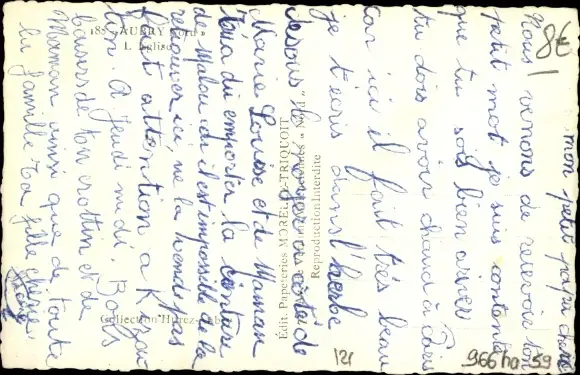 mon petit papa chéri
Nous venons de recevoir ton
petit mot je suis contente
que tu sois bien arrivé
tu dois avoir chaud à Paris
car ici il fait très beau
je t'écris dans l'herbe
dessous le à côté de
Marie Louise et de Maman
Tu a du emporter la ceinture
de Malou car il est impossible de la
retrouver ici, ne la perds pas
fait attention a
toi. A jeudi midi. Bons
baisers de ton crottin et de
Maman ainsi que de toute
la famille ta fille chérie
8€
185 - AUBRY (Nord)
L'Eglise
Édit. Papeteries MORELLE-TRIQUOIT
Reproduction Interdite
Collection
121
966 ha - 59